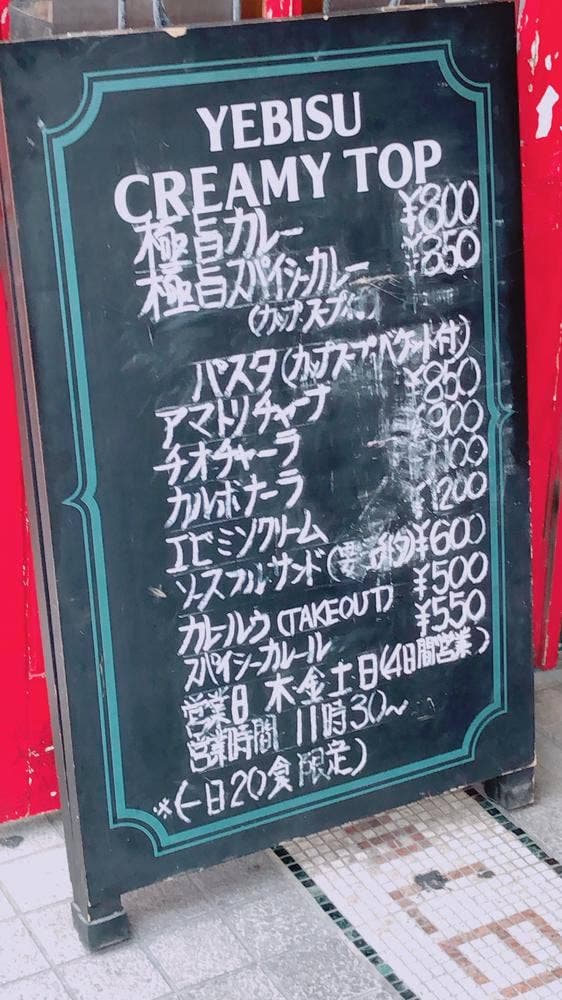 YEBISU
CREAMY TOP
極旨カレー ¥800
極旨スパイシーカレー ¥850
(カップスープ付)
パスタ(カップスープバケット付)
アマトリチャーナ ¥850
チオチャーラ ¥900
カルボナーラ
エビミソクリーム ¥1200
スフルサンド ¥600
カレールウ(TAKEOUT) ¥500
スパイシーカレールー ¥550
営業日 木金土日(4日間営業)
営業時間 11時30~
※(一日20食限定)